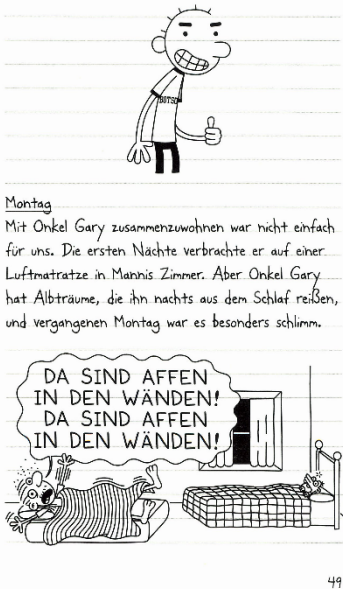 BOTSC
Montag
Mit Onkel Gary zusammenzuwohnen war nicht einfach
für uns. Die ersten Nächte verbrachte er auf einer
Luftmatratze in Mannis Zimmer. Aber Onkel Gary
hat Albträume, die ihn nachts aus dem Schlaf reißen,
und vergangenen Montag war es besonders schlimm.
DA SIND AFFEN
IN DEN WÄNDEN!
DA SIND AFFEN
IN DEN WÄNDEN!
49